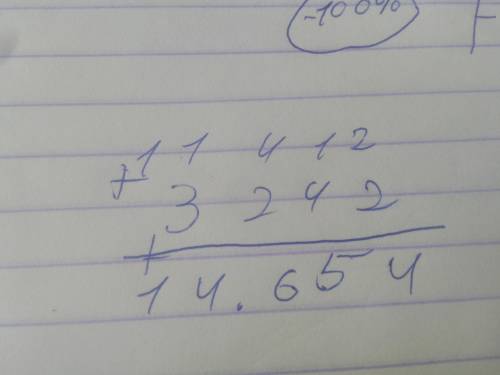 -100%
1 1 4 1 2
+ 3 2 4 2
1 4 . 6 5 4